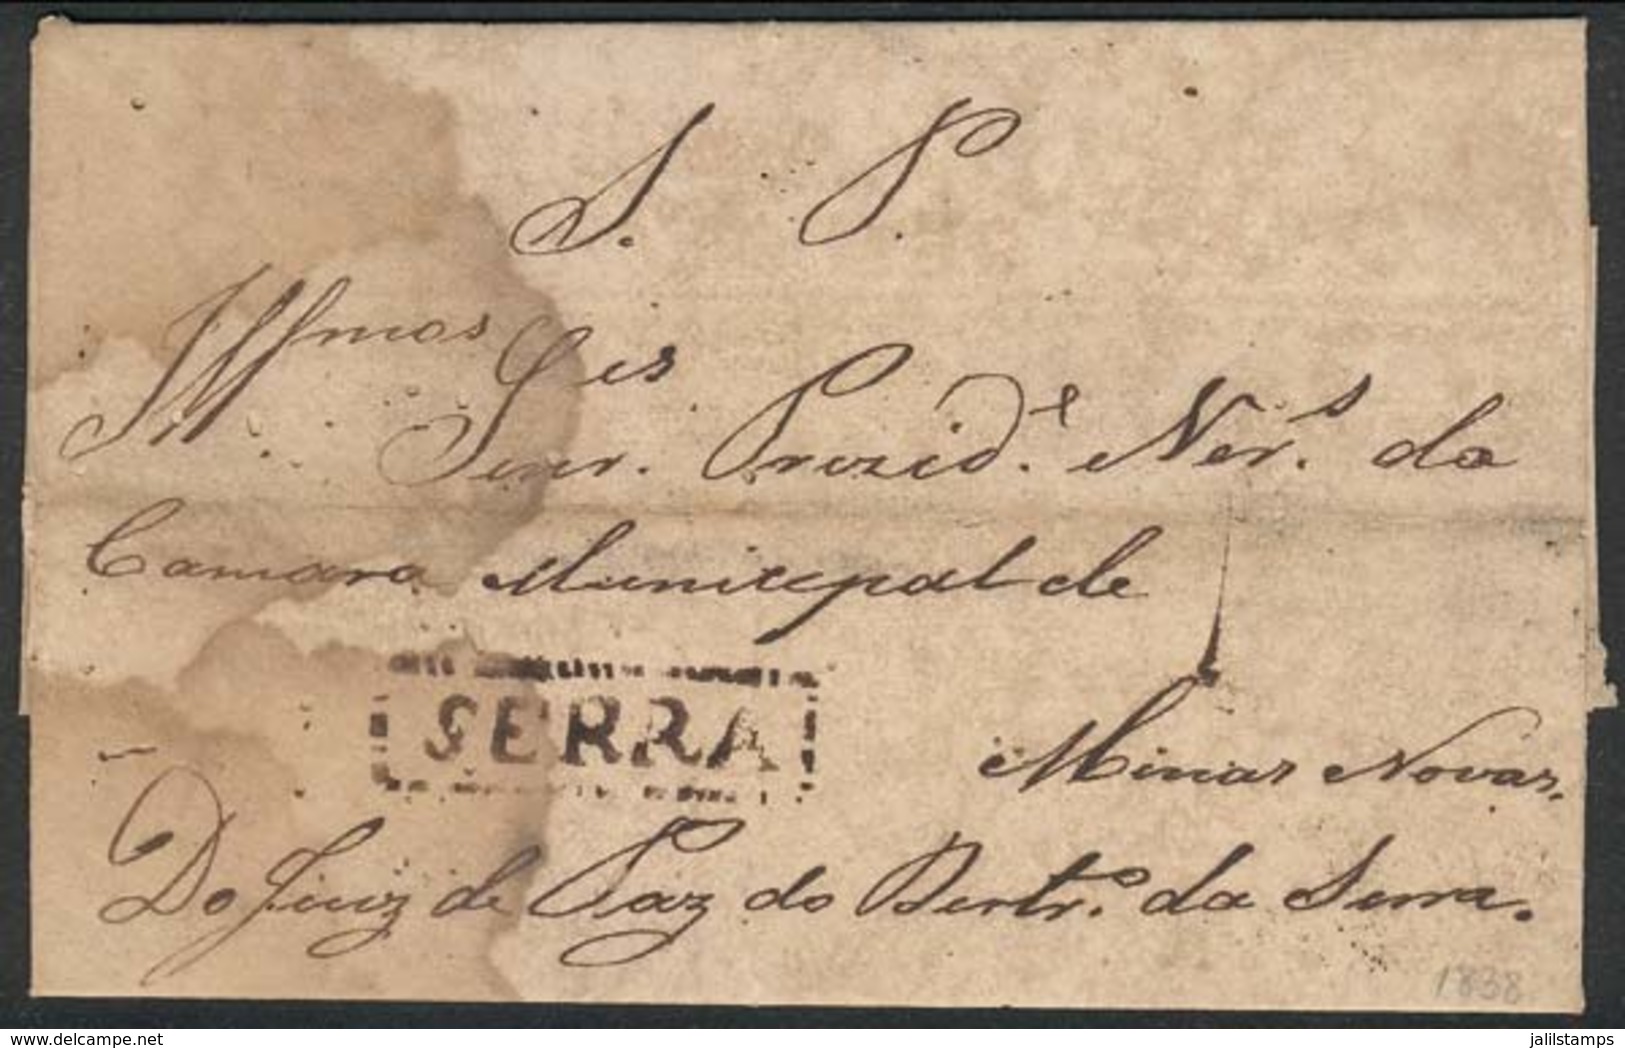 S. P.
Illmos Senr.es Prezid.e Ver.s da
Camara Municipal de
SERRA
Minas Novas,
Do Juiz de Paz do Destr.o da Serra.
1838
delcampe.net
jalilstamps